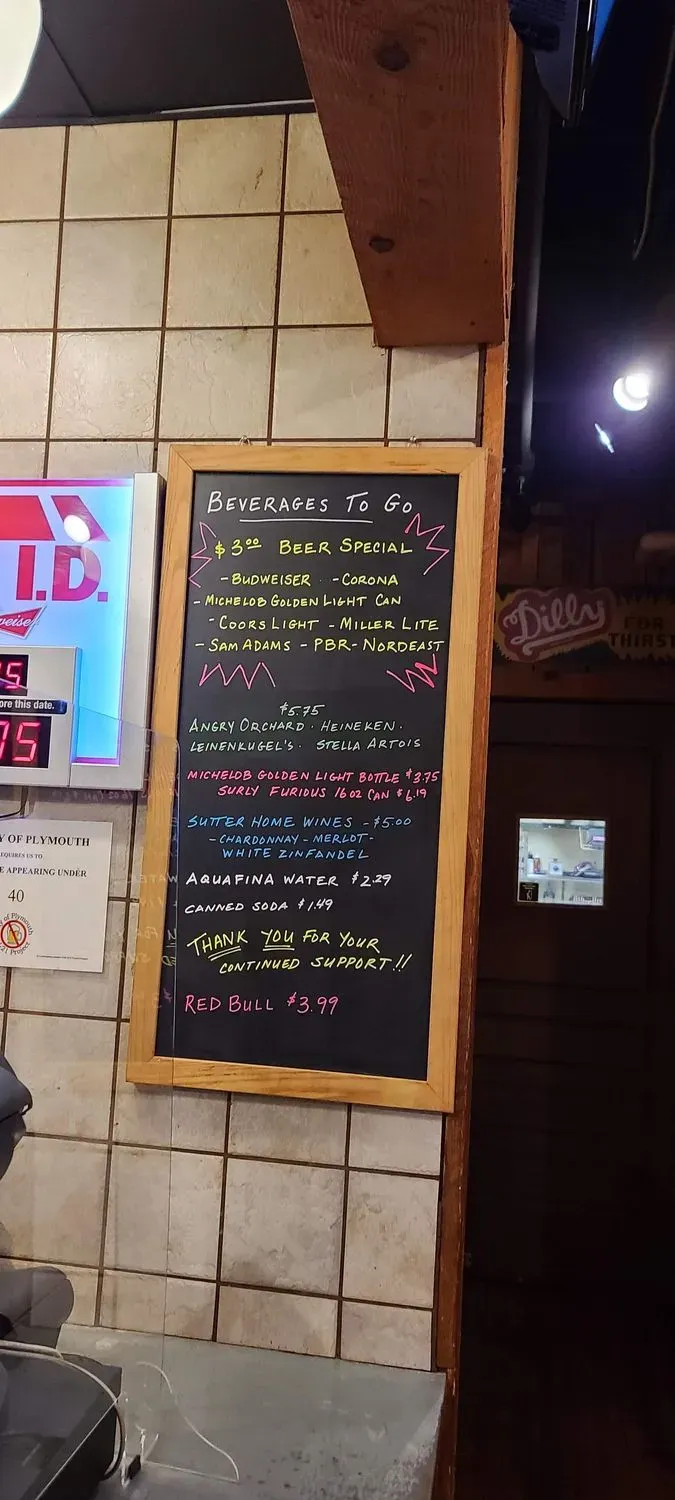 BEVERAGES TO GO
$3.00 BEER SPECIAL
- BUDWEISER - CORONA
- MICHELOB GOLDEN LIGHT CAN
- COORS LIGHT - MILLER LITE
- SAM ADAMS - PBR - NORDEAST
$5.75
ANGRY ORCHARD · HEINEKEN ·
LEINENKUGEL'S · STELLA ARTOIS
MICHELOB GOLDEN LIGHT BOTTLE $3.75
SURLY FURIOUS 16 OZ CAN $6.19
SUTTER HOME WINES - $5.00
- CHARDONNAY - MERLOT -
WHITE ZINFANDEL
AQUAFINA WATER $2.29
CANNED SODA $1.49
THANK YOU FOR YOUR
CONTINUED SUPPORT!!
RED BULL $3.99
I.D.
weiser
5
ore this date.
75
Y OF PLYMOUTH
EQUIRES US TO
E APPEARING UNDER
40
of Plymouth
21 Project
Dilly
FOR
THIRST